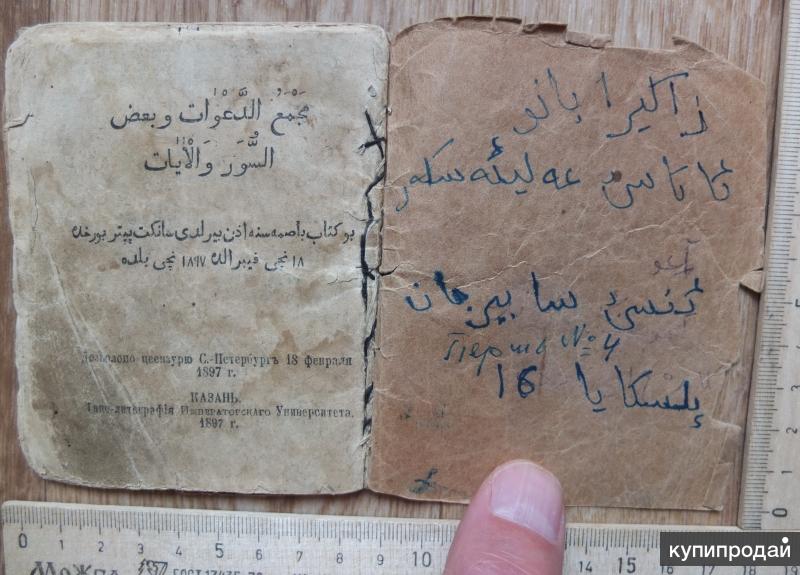 مَجْمَعُ الدَّعَوٰات وبعض
السُّوَرَ وَالْاٰيٰات
بو كتاب باصمه سنه اذن بيرلدى سانكت پيتر بورغده
١٨ نچى فيبرالده ١٨٩٧ نچى يلده
Дозволено цензурю С.-Петербургъ 18 февраля
1897 г.
КАЗАНЬ.
Типо-литографія Императорскаго Университета.
1897 г.
زاكيرا بانو
اتاسى عه ليئه سكەر
سابيرجان
Пермь № 4
يا 16
0 1 2 3 4 5 6 7 8 9 10 14 15 16 17 18 19
купипродай